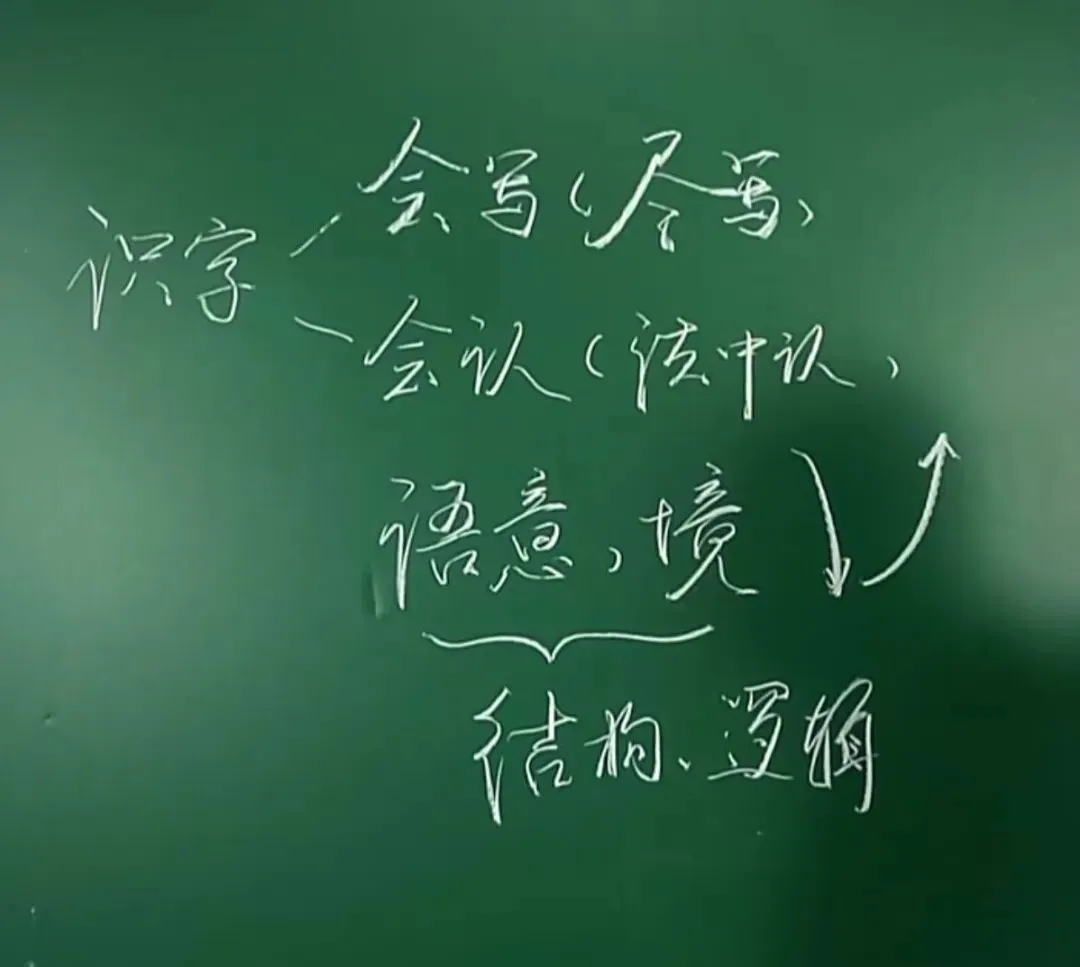 会写(尽写)
识字
会认(读中认)
语意,境
结构、逻辑